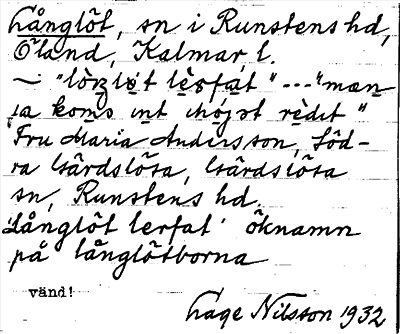 Långlöt, sn i Runstens hd,
Öland, Kalmar l.
"lòŋlø̀t lèrfat" --- "mæn
koms
Fru Maria Andersson, Söd-
ra Gärdslösa, Gärdslösa
sn, Runstens hd.
'Långlöt lerfat' öknamn
på långlötborna
vänd!
Lage Nilsson 1932